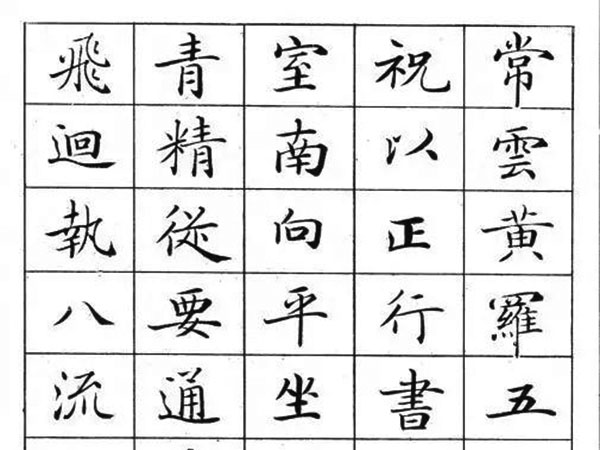 常雲黄羅五
祝以正行書
室南向平坐
青精從要通
飛迴執八流